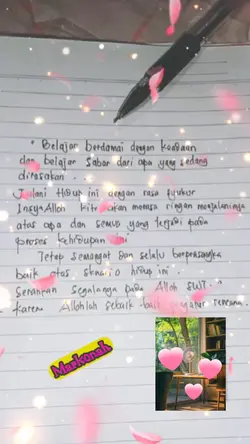 " Belajar berdamai dengan keadaan
dan belajar sabar dari apa yang sedang
dirasakan.
Jalani Hidup ini dengan rasa syukur
InsyaAlloh kita akan merasa ringan menjalaninya
atas apa dan semua yang terjadi pada
proses kehidupan ini
Tetap semangat dan selalu berprasangka
baik atas skenario hidup ini
Serahkan segalanya pada Alloh SWT. "
Karena Allohlah sebaik baik pengatur rencana.
Markonah